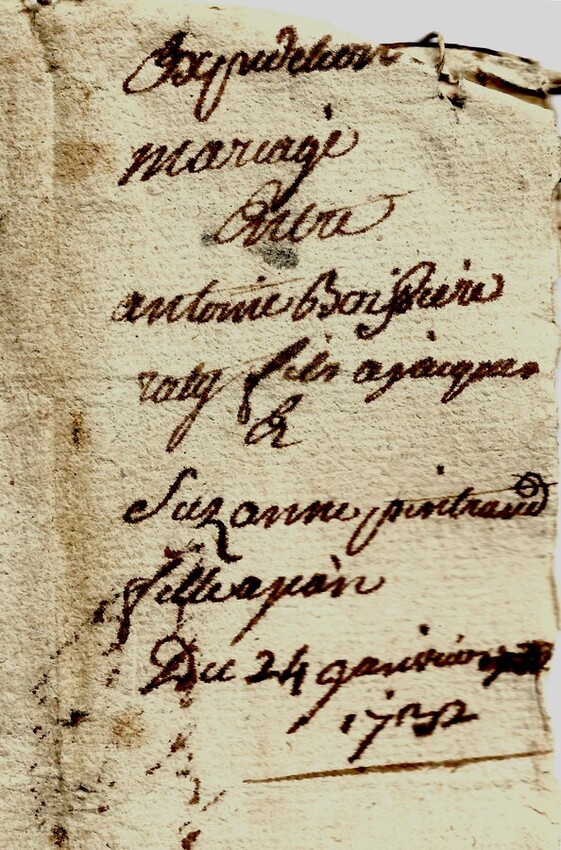 Expedition
mariage
Entre
antoine Boissiere
fils a jaiques
&
Suzanne pintraud
fille a jean
Du 24 janvier
1732